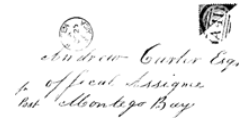 Andrew Curter Esqr
official Assignee
Post Montego Bay